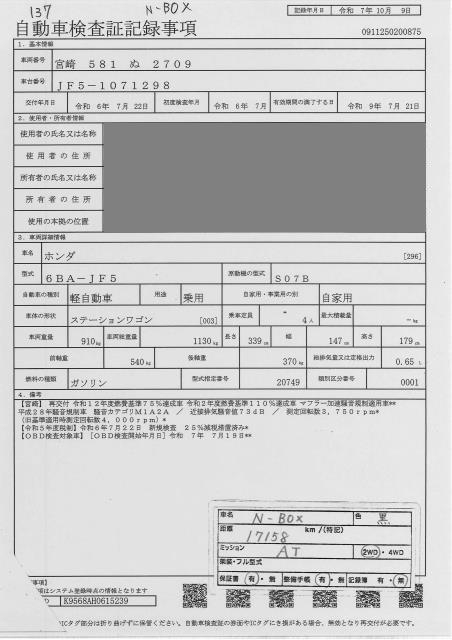 137 N-BOX
記録年月日 令和 7年 10月 9日
自動車検査証記録事項
0911250200875
1．基本情報
車両番号 宮崎 581 ぬ 2709
車台番号 JF5-1071298
交付年月日 令和 6年 7月 22日 初度検査年月 令和 6年 7月 有効期間の満了する日 令和 9年 7月 21日
2．使用者・所有者情報
使用者の氏名又は名称
使用者の住所
所有者の氏名又は名称
所有者の住所
使用の本拠の位置
3．車両詳細情報
車名 ホンダ [296]
型式 6BA-JF5 原動機の型式 S07B
自動車の種別 軽自動車 用途 乗用 自家用・事業用の別 自家用
車体の形状 ステーションワゴン [003] 乗車定員 4人 最大積載量 -kg
車両重量 910kg 車両総重量 1130kg 長さ 339cm 幅 147cm 高さ 179cm
前軸重 540kg 後軸重 370kg 総排気量又は定格出力 0.65 L
燃料の種類 ガソリン 型式指定番号 20749 類別区分番号 0001
4．備考
【宮崎】 再交付 令和12年度燃費基準75％達成車 令和2年度燃費基準110％達成車 マフラー加速騒音規制適用車**
平成28年騒音規制車 騒音カテゴリM1A2A ／ 近接排気騒音値73dB ／ 測定回転数3，750rpm*
(旧基準適用時測定回転数4，000rpm)*
【令和5年度税制】令和6年7月22日 新規検査 25％減税措置済み*
【OBD検査対象車】[OBD検査開始年月日] 令和 7年 7月19日**
車名 N-BOX 色 黒
距離 17158 km／(特記)
ミッション AT 2WD・4WD
架装・フル型式
保証書 有・無 整備手帳 有・無 記録簿 有・無
事項]
はシステム登録時点の情報となります
K9568AH0615239
ICタグ部分は折り曲げずに保管ください。自動車検査証の券面やICタグにき損がある場合、無効となり再交付が必要です。